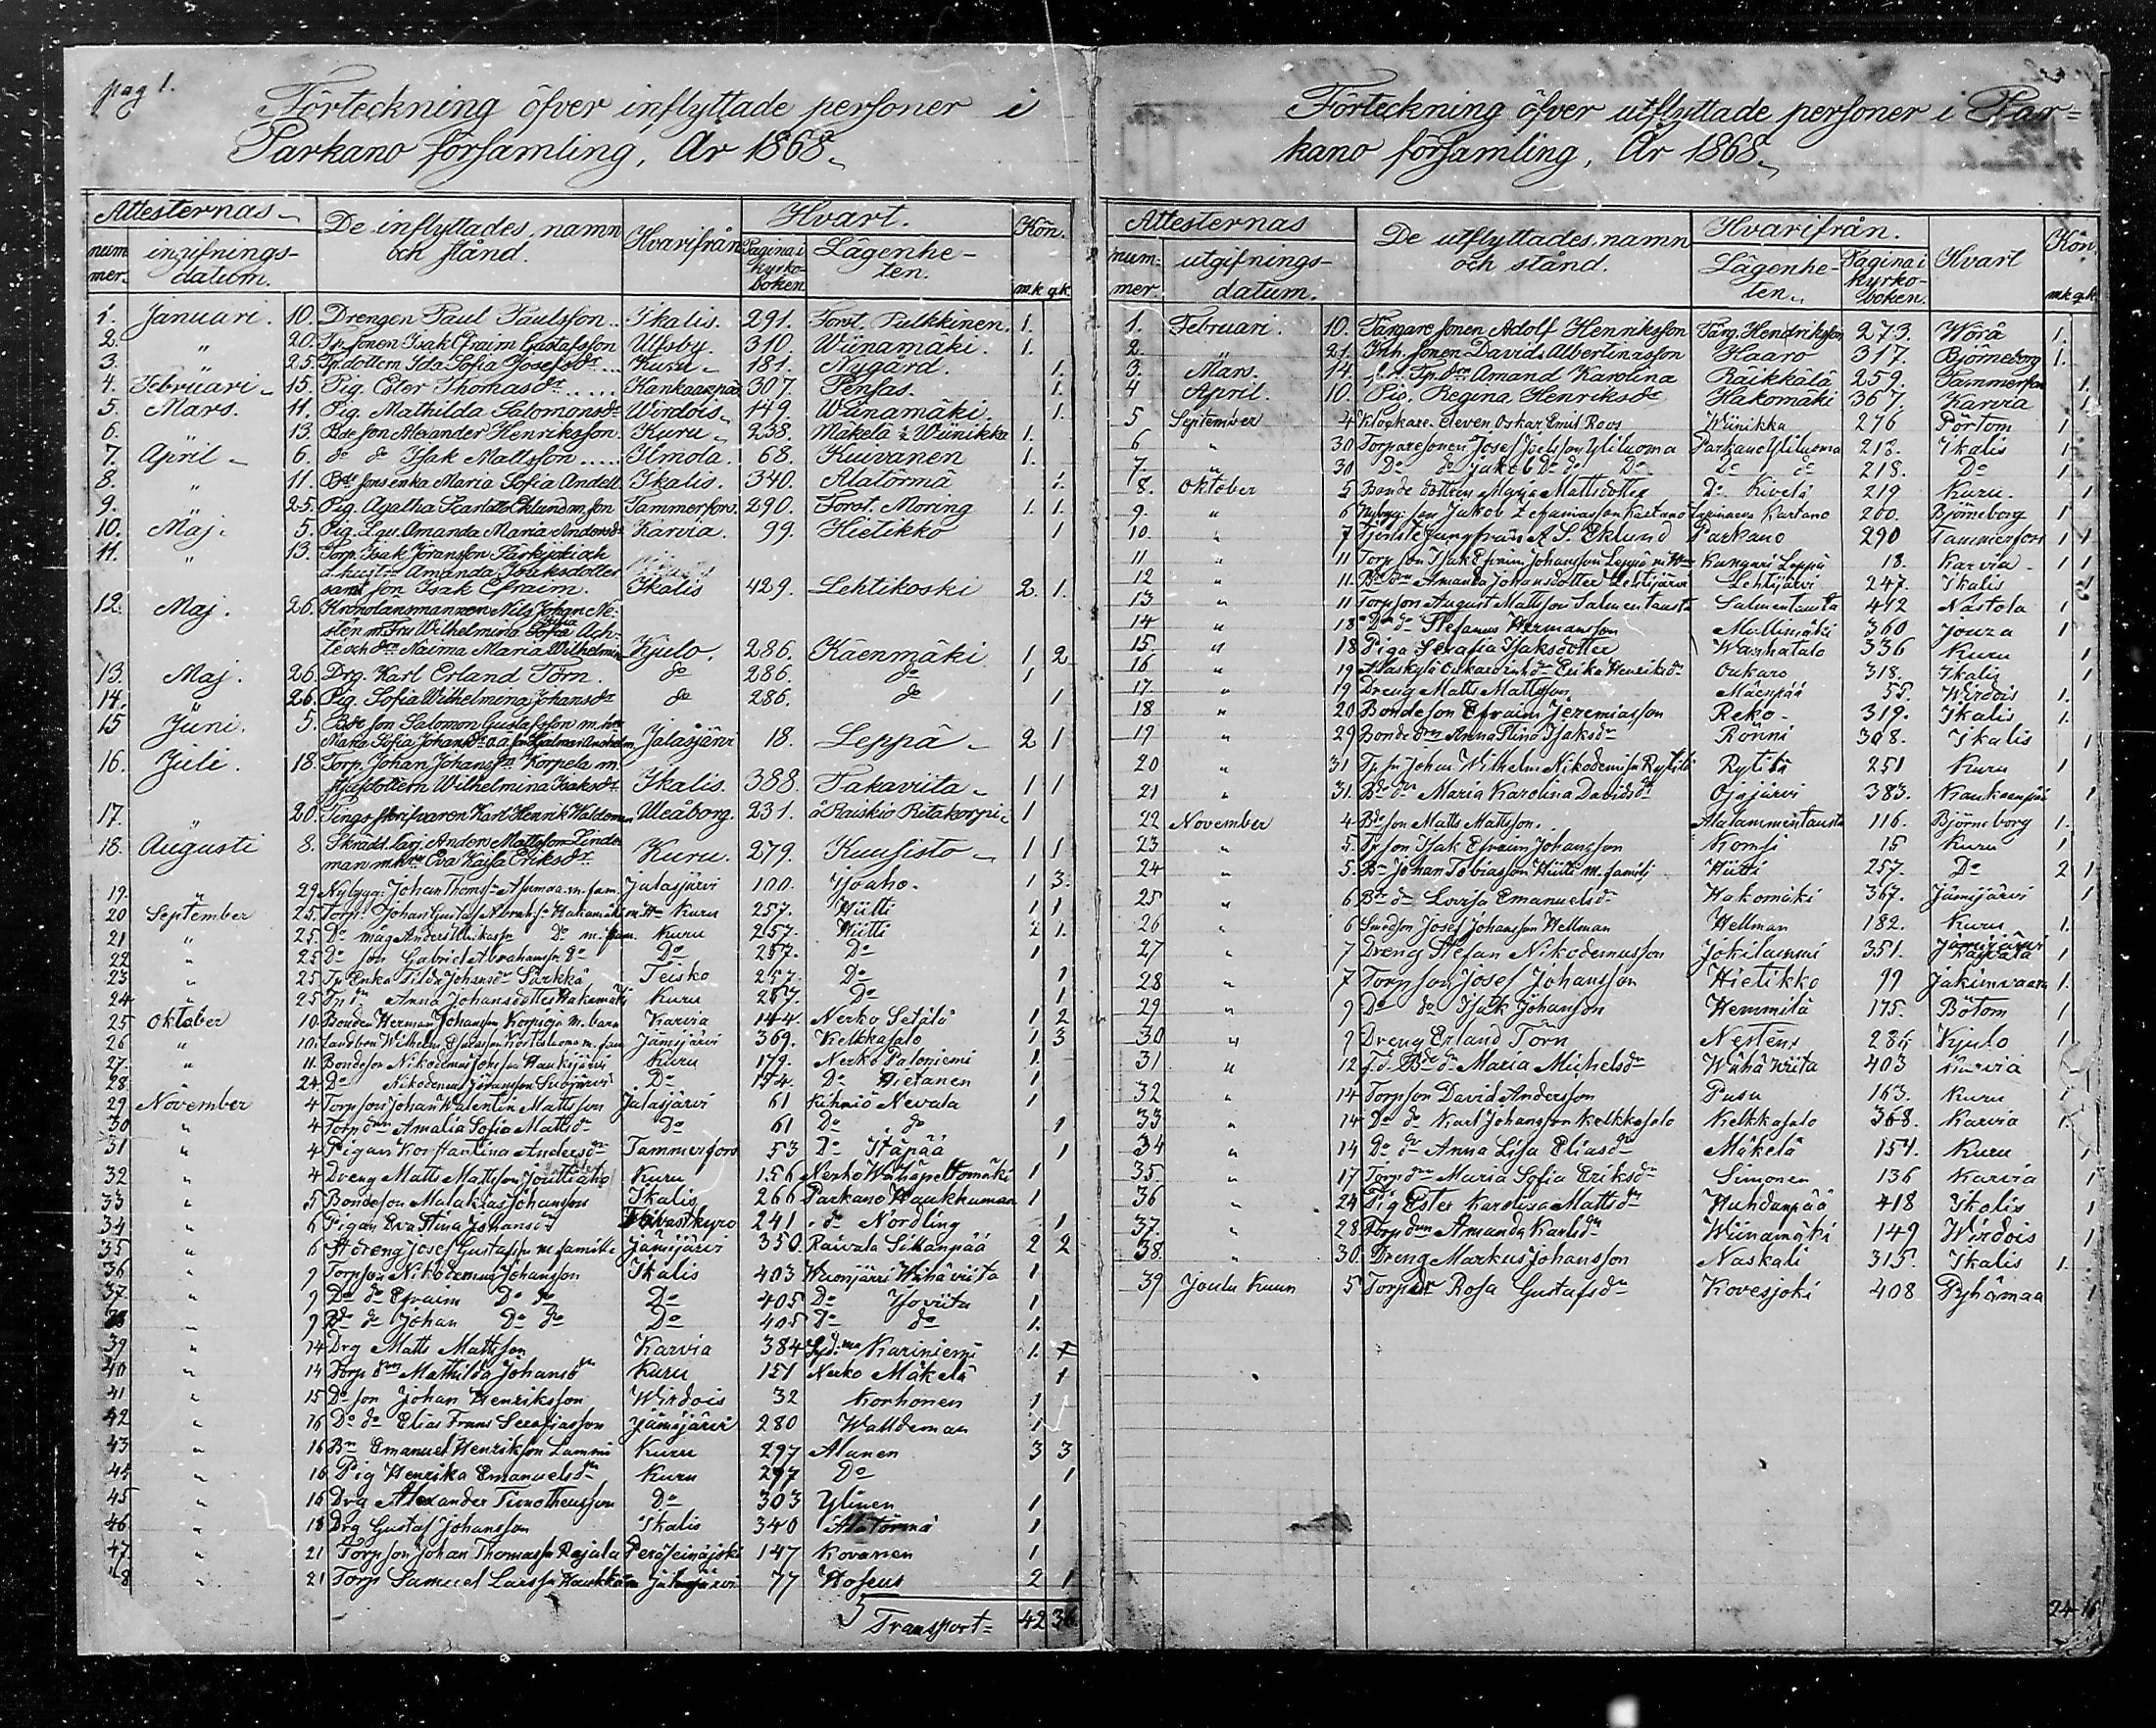 pag 1.
Förteckning öfver inflyttade personer i
Parkano församling, År 1868.
Attesternas
De inflyttades namn
och stånd.
Hvarifrån
Hvart.
Kön.
num
mer.
ingifnings-
datum.
Pagina i
kyrko-
boken
Lägenhe-
ten.
m.k q.k
1. Januari. 10. Drengen Paul Paulsson.. Ikalis. 291. Forst. Pulkkinen. 1.
2. " 20. Tp. sonen Isak Efraim Gustafsson Ulfsby. 310. Wiinamäki. 1.
3. 25. Tp. dottern Ida Sofia Josefsdr... Kuru 181. Nygård. 1.
4. Februari 15. Pig. Ester Thomasdr..... Kankaanpää 307. Pensas. 1.
5. Mars. 11. Pig. Mathilda Salomonsdr Wirdois 149. Wiinamäki. 1.
6. 13. Bde son Alexander Henriksson. Kuru 238. Mäkelä Wiinikka 1.
7. April 6. do do Isak Mattsson..... Ilmola. 68. Kuivanen 1.
8. " 11. Bde sons enka Maria Sofia Andell Ikalis. 340. Alatörmä 1.
9. 25. Pig. Agatha Scarlotta Eklund m. son Tammerfors. 290. Forst. Moring 1. 1.
10. Maj. 5. Pig. Amanda Maria Andersdr Karvia. 99. Hietikko 1
11. " 13. Torp. Isak Göransson Särkijoki och
d. hustru Amanda Eriksdotter
samt son Isak Efraim. Ikalis 429. Lehtikoski 2. 1.
12. Maj. 26. Kronolänsmannen Nils Johan Ne-
stén m. Fru Wilhelmina Sofia Ach-
té och dr Naima Maria Wilhelmina Kjulo. 286. Käenmäki 1 2
13. Maj. 26. Drg. Karl Erland Törn. do 286. do 1
14. " 26. Pig. Sofia Wilhelmina Johansdr do 286. do 1
15 Juni. 5. Bde son Salomon Gustafsson m. hu
Maria Sofia Johansdr o. a. son Hjalmar Anshelm Jalasjärvi 18. Leppä 2 1
16. Juli. 18. Torp. Johan Johansson Korpela m.
styfdottern Wilhelmina Isaksdr Ikalis. 388. Takaviita 1 1
17. " 20. Tingsskrifvaren Karl Henrik Waldeman Uleåborg. 231. å Raiskio Ritakorpi 1
18. Augusti 8. Skrädd. lärj. Anders Mattsson Linde-
man m. hu Eva Kajsa Eriksdr. Kuru. 279. Kuusisto 1 1
19. " 29. Nybygg. Johan Thomass. Asumaa m. fam. Jalasjärvi 100. Isoaho. 1 3.
20 September 25. Torp. Johan Gustaf Abrahss. Hakamäki m. Hu Kuru 257. Hütti 1 1
21 " 25. Do måg Anders Mikaelss. Do m. fam. Kuru 257. Hütti 2 1.
22 " 25 Do son Gabriel Abrahamss. Do Do 257. Do 1
23 " 25 Tp. Enka Tilda Johansdr Särkkä Teisko 257. Do 1
24 " 25 Tp. dr Anna Johansdotter Hakamäki Kuru 257. Do 1
25 Oktober 10. Bonden Herman Johansson Korpioja m. barn Karvia 144. Nerko Setälä 1 2
26 " 10. Landbon Wilhelm m. fam Jämijärvi 369. Kelkkasalo 1 3
27. " 11. Bondeson Nikodemus Haukijärvi Kuru 179. Nerko Paloniemi 1.
28 " 24. Do Nikodemus Johansson Do 154. Do Hietanen 1
29 November 4 Torpson Johan Walentin Mattsson Jalasjärvi 61 Kihniö Nevala 1
30 " 4 Torp dr Amalia Sofia Mattsdr Do 61 Do do 1
31 " 4 Pigan Konstantina Andersdr Tammerfors 53 Do Itäpää 1
32 " 4 Dreng Matts Mattsson Kuru 156 Nerko Wähäpeltomäki 1
33 " 5 Bondeson Malakias Johansson Ikalis 266 Parkano Haukkumaa 1
34 " 6 Pigan Eva Stina Johansdr Tavastkyro 241 do Nordling 1
35 " 6 Josef Gustafss. m. familie Jämijärvi 350. Raivala Sillanpää 2 2
36 " 9 Torpson Nikodemus Johansson Ikalis 403 Kuonjärvi Wähäviita 1
37. " 9 Do do Efraim Do do Do 405 Do Isoviita 1
38 " 9 Do do Johan Do do Do 405 Do do 1.
39 " 14 Drg Matts Mattsson Karvia 384 Kariniemi 1.
40 " 14 Torp dr Mathilda Johansdr Kuru 151 Nerko Mäkelä 1
41 " 15 Do son Johan Henriksson Wirdois 32 Korhonen 1
42 " 16 Do do Elias Frans Serafiasson Jämijärvi 280 Walldeman 1
43 " 16 Bn Emanuel Henriksson Lammi Kuru 297 Alanen 3 3
44 " 16 Pig Henrika Emanuelsdr Kuru 297 Do 1
45 " 16 Drg Alexander Timotheusson Do 303 Ylinen 1
46 " 18 Drg Gustaf Johansson Ikalis 340 Alatörmä 1
47 " 21 Torpson Johan Thomasson Rajala Peräseinäjoki 147 Kovanen 1
48 " 21 Torp Samuel Larsson 77 Hoseus 2 1
Transport= 42 36
Förteckning öfver utflyttade personer i Par=
kano församling, År 1868.
Attesternas
De utflyttades namn
och stånd.
Hvarifrån.
Hvart
Kön.
num-
mer.
utgifnings-
datum.
Lägenhe-
ten.
Pagina i
kyrko-
boken.
m.k q.k
1. Februari. 10. Färgare sonen Adolf Henriksson Färg. Hendriksson 273. Wörå 1.
2. " 21. Inh. sonen David Albertinasson Haaro 317. Björneborg 1.
3. Mars. 14 Tp. dr Amand Karolina Räikkälä 259. Tammerfors 1.
4 April. 10. Pig. Regina Henriksdr Hakomäki 367. Karvia 1.
5 September 4 Klockare Eleven Oskar Emil Roos Wiinikka 276 Pörtom 1
6 " 30 Torparesonen Josef Josefsson Yliluoma Parkano Yliluoma 218. Ikalis 1
7 " 30 Do do Jakob Do do Do Do do 218. Do 1
8. Oktober 5 Bonde dottern Maja Mattsdotter Do Kivelä 219 Kuru. 1
9. " 6 Nybygg. son Jakob Zefaniasson Kartano Kartano 200. Björneborg 1
10. " 7 Tjenste Jungfrun A. S. Eklund Parkano 290 Tammerfors 1 1
11 " 11 Torpson Isak Efraim Johansson Leppä m Hu Kangari Leppä 18. Karvia 1 1
12 " 11 Bde dr Amanda Johansdotter Lehtijärvi Lehtijärvi 247. Ikalis 1
13 " 11 Torpson August Mattsson Salmentausta Salmentausta 412 Nastola 1
14 " 18 Do do Stefanus Hermansson Mallimäki 360 Jouza 1
15. " 18 Piga Serafia Isaksdotter Wanhatalo 336 Kuru 1
16 " 19 Erika Henriksdr Oukaro 318. Ikalis 1
17. " 19 Dreng Matts Mattsson Mäenpää 55. Wirdois 1.
18 " 20 Bondeson Efraim Jeremiasson Reko 319. Ikalis 1.
19 " 29 Bonde dr Anna Stina Isaksdr Rönni 308. Ikalis 1
20 " 31 Tp. sn Johan Wilhelm Nikodemisn Rytilä Rytilä 251 Kuru 1
21 " 31. Bde dr Maria Karolina Davidsdr Ojajärvi 383. Kankaanpää 1
22 November 4 Bde son Matts Mattsson. Alalammentausta 116. Björneborg 1.
23 " 5. Tp son Isak Efraim Johansson Komsi 15 Kuru 1
24 " 5. Bn Johan Tobiasson Hütti m. familj Hütti 257. Do 2 1
25 " 6 Bn dr Lovisa Emanuelsdr Hakomäki 367. Jämijärvi 1
26 " 6 Smedson Josef Johansson Hellman Hellman 182. Kuru 1.
27 " 7 Dreng Stefan Nikodemusson Jokilammi 351. Jämijärvi 1
28 " 7 Torpson Josef Johansson Hietikko 99 Jakimvaara 1.
29 " 9 Do do Isak Johansson Hemmilä 175. Bötom 1
30 " 9 Dreng Erland Törn Nesténs 286 Kjulo 1
31 " 12 f.d. Bde dr Maria Michelsdr Wähäwiita 403 Karvia
32 " 14 Torpson David Andersson Pusu 163. Kuru 1
33 " 14 Do do Karl Johansson Kelkkasalo Kelkkasalo 368. Karvia 1.
34 " 14 Do dr Anna Lisa Eliasdr Mäkelä 151. Kuru 1
35 " 17 Torp dr Maria Sofia Eriksdr Simonen 136 Karvia 1
36 " 24 Pig Ester Karolina Mattsdr Huhdanpää 418 Ikalis 1
37. " 28 Torp dr Amanda Karlsdr Wiinamäki 149 Wirdois 1
38. " 30. Dreng Markus Johansson Naskali 315. Ikalis 1.
39 Joulu Kuun 5 Torp dr Rosa Gustafsdr Kovesjoki 408 Pyhämaa 1
24 16